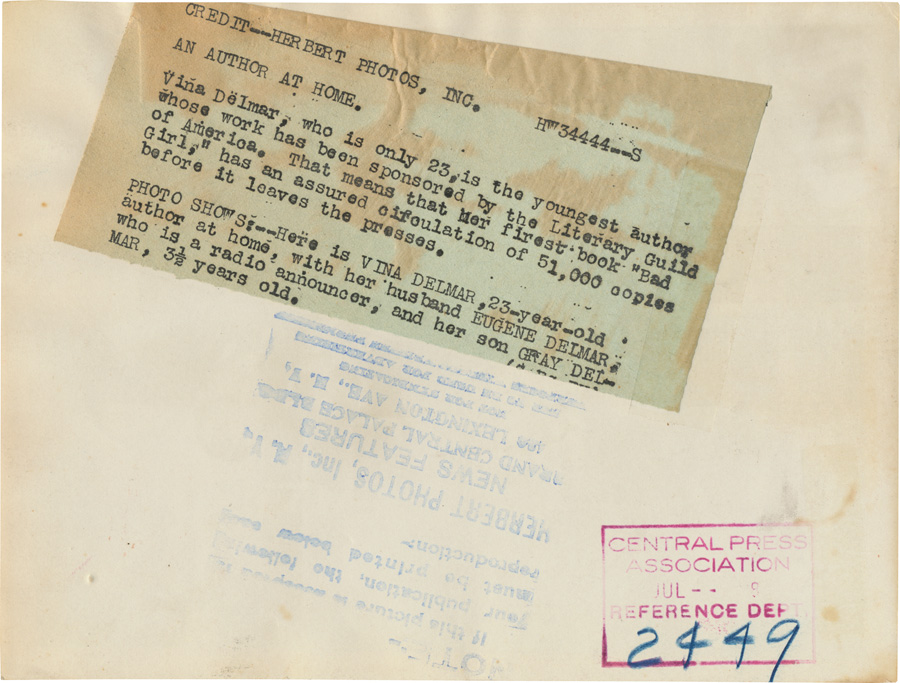 CREDIT--HERBERT PHOTOS, INC.
HW34444--S
AN AUTHOR AT HOME.
Vina Delmar, who is only 23, is the youngest author
whose work has been sponsored by the Literary Guild
of America. That means that her first book "Bad
Girl," has an assured circulation of 51,000 copies
before it leaves the presses.
PHOTO SHOWS:--Here is VINA DELMAR, 23-year-old
author at home, with her husband EUGENE DELMAR,
who is a radio announcer, and her son GRAY DEL-
MAR, 3½ years old.
NOTE
If this picture is accepted
your publication, the following
must be printed below
reproduction-
HERBERT PHOTOS, Inc., N. Y.
NEWS FEATURES
GRAND CENTRAL PALACE
LEXINGTON AVE., N. Y.
CENTRAL PRESS
ASSOCIATION
JUL -- 9
REFERENCE DEPT.
2449